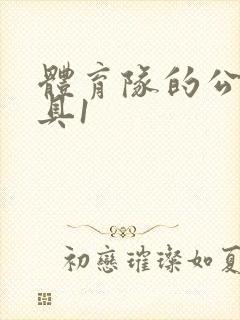 體育隊的公
具1
初戀璀璨如夏